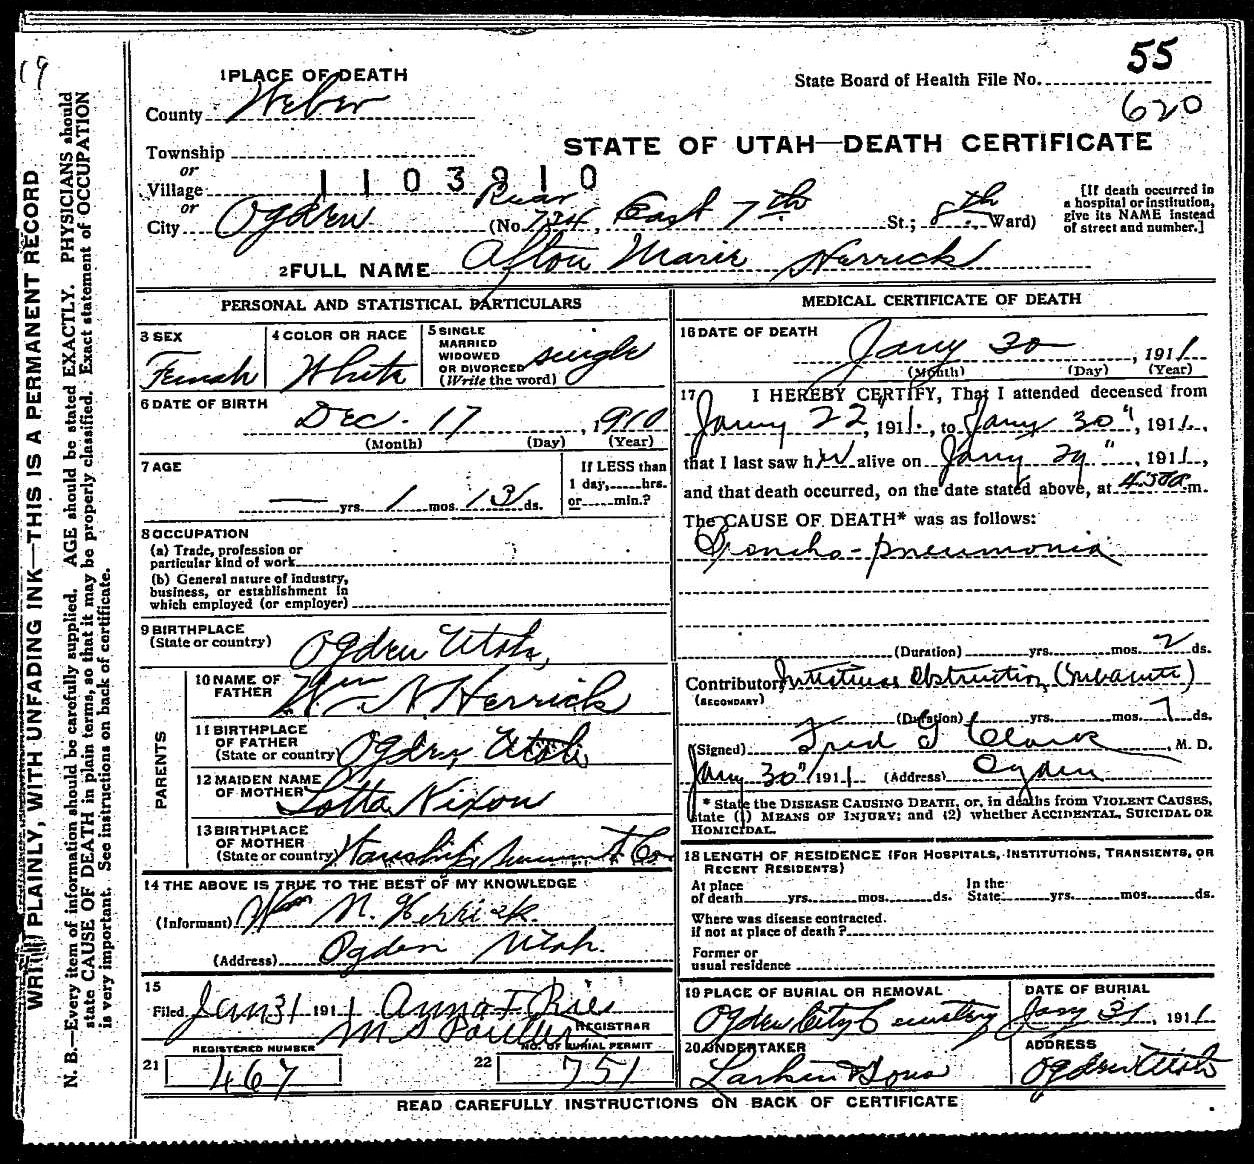 19
WRITE PLAINLY, WITH UNFADING INK—THIS IS A PERMANENT RECORD
N. B.—Every item of information should be carefully supplied. AGE should be stated EXACTLY. PHYSICIANS should
state CAUSE OF DEATH in plain terms, so that it may be properly classified. Exact statement of OCCUPATION
is very important. See instructions on back of certificate.
1 PLACE OF DEATH
County Weber
State Board of Health File No. 55
620
STATE OF UTAH—DEATH CERTIFICATE
Township
or
Village
1103910
or
City Ogden (No. Rear 734, East 7th St.; 8th Ward)
[If death occurred in
a hospital or institution,
give its NAME instead
of street and number.]
2 FULL NAME Afton Marie Herrick
PERSONAL AND STATISTICAL PARTICULARS
3 SEX
Female
4 COLOR OR RACE
White
5 SINGLE
MARRIED
WIDOWED
OR DIVORCED
(Write the word)
single
6 DATE OF BIRTH
Dec. 17, 1910
(Month) (Day) (Year)
7 AGE
— yrs. 1 mos. 13 ds.
If LESS than
1 day,.....hrs.
or.....min.?
8 OCCUPATION
(a) Trade, profession or
particular kind of work
(b) General nature of industry,
business, or establishment in
which employed (or employer)
9 BIRTHPLACE
(State or country)
Ogden Utah,
PARENTS
10 NAME OF
FATHER
Wm N. Herrick
11 BIRTHPLACE
OF FATHER
(State or country)
Ogden, Utah
12 MAIDEN NAME
OF MOTHER
Lotta Nixon
13 BIRTHPLACE
OF MOTHER
(State or country)
Summit Co
14 THE ABOVE IS TRUE TO THE BEST OF MY KNOWLEDGE
(Informant) Wm N. Herrick.
(Address) Ogden Utah.
15
Filed Jan 31 1911 Anna F Ries
REGISTRAR
REGISTERED NUMBER
21 467
NO. OF BURIAL PERMIT
22 751
MEDICAL CERTIFICATE OF DEATH
16 DATE OF DEATH
Jany 30, 1911
(Month) (Day) (Year)
17 I HEREBY CERTIFY, That I attended deceased from
Jany 22", 1911, to Jany 30", 1911,
that I last saw her alive on Jany 29", 1911,
and that death occurred, on the date stated above, at m.
The CAUSE OF DEATH* was as follows:
Broncho-pneumonia
(Duration) yrs. mos. 2 ds.
Contributory Intestinal Obstruction (Subacute)
(SECONDARY)
(Duration) yrs. mos. 7 ds.
(Signed) Fred G Clark, M. D.
Jany 30" 1911 (Address) Ogden
* State the DISEASE CAUSING DEATH, or, in deaths from VIOLENT CAUSES,
state (1) MEANS OF INJURY; and (2) whether ACCIDENTAL, SUICIDAL OR
HOMICIDAL.
18 LENGTH OF RESIDENCE (FOR HOSPITALS, INSTITUTIONS, TRANSIENTS, OR
RECENT RESIDENTS)
At place
of death yrs. mos. ds.
In the
State yrs. mos. ds.
Where was disease contracted.
if not at place of death?
Former or
usual residence
19 PLACE OF BURIAL OR REMOVAL
Ogden City Cemetery
DATE OF BURIAL
Jany 31, 1911
20 UNDERTAKER
Larkin & Sons
ADDRESS
Ogden Utah
READ CAREFULLY INSTRUCTIONS ON BACK OF CERTIFICATE